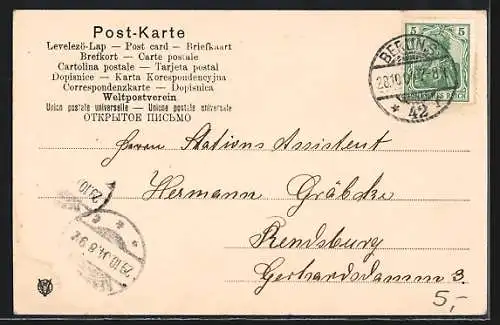 Post-Karte
Levelező-Lap — Post card — Briefkaart
Brefkort — Carte postale
Cartolina postale — Tarjeta postal
Dopisnice — Karta Korespondencyjna
Correspondenzkarte — Dopisnica
Weltpostverein
Union postale universelle — Unione postale universale
ОТКРЫТОЕ ПИСЬМО
5 5
BERLIN
28.10.04. 7-8
* 42
Herrn Stations Assistent
Hermann Gräbcke
Rendsburg
Gerhardsdamm 3.
29.10
29.10.04. 8-9
5,-